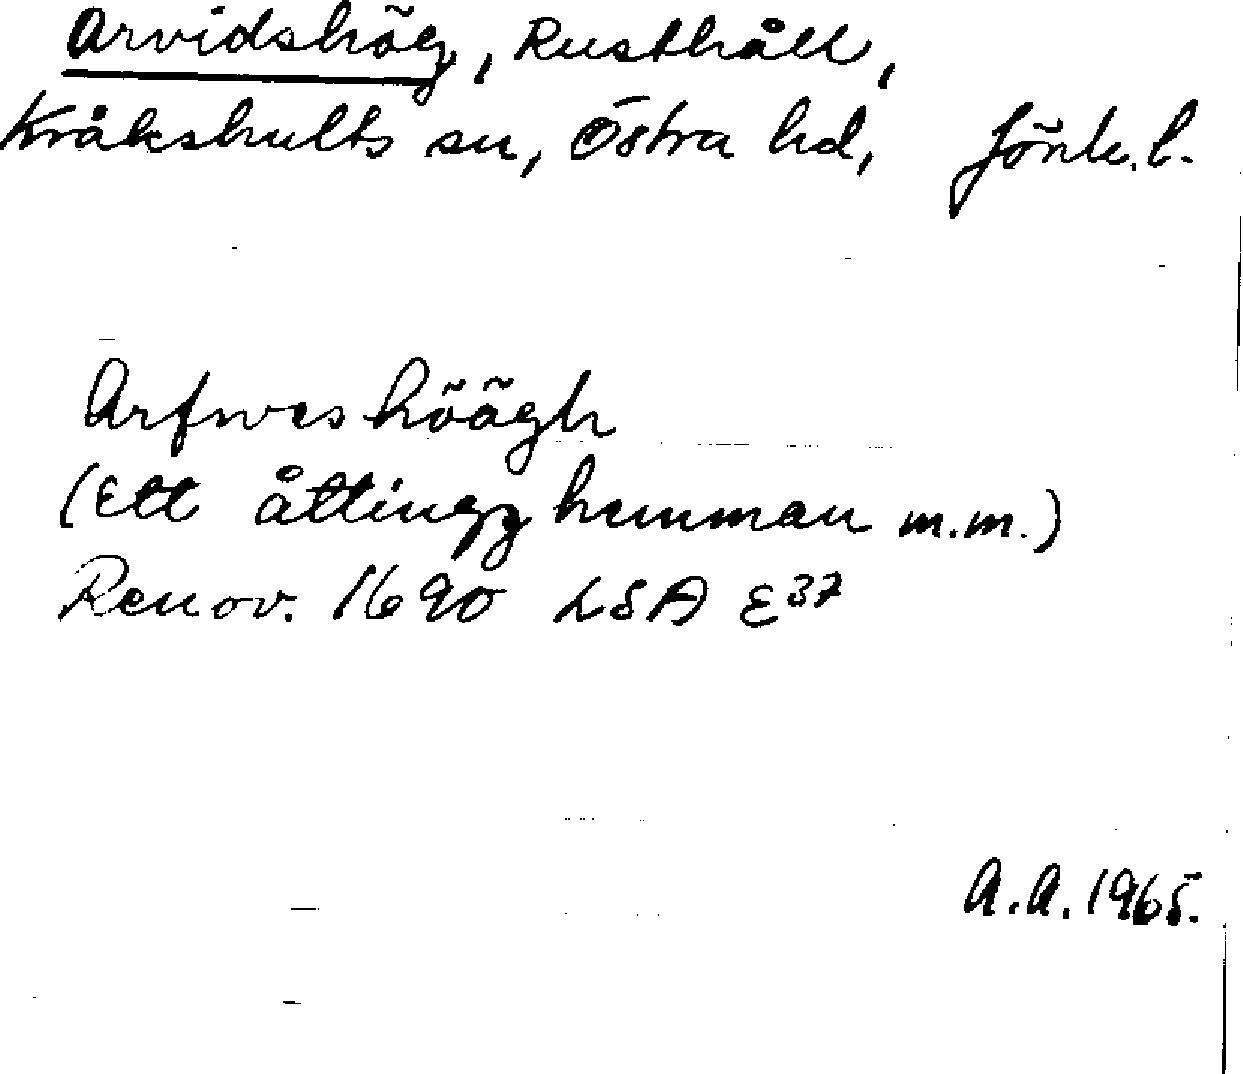 Arvidshög, Rusthåll,
Kråkshults sn, Östra hd, Jönk. l.
Arfwes höögh
(Ett åttingz hemman m.m.)
Renov. 1690 LSA E37
A.A. 1965.